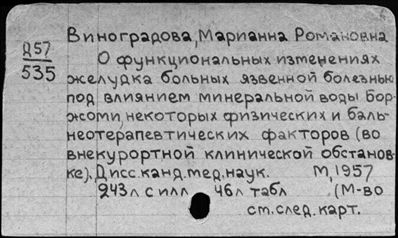 Виноградова, Марианна Романовна
Д57
535
О функциональных изменениях
желудка больных язвенной болезнью
под влиянием минеральной воды Бор-
жоми, некоторых физических и баль-
неотерапевтических факторов (во
внекурортной клинической обстанов-
ке). Дисс. канд. мед. наук. М, 1957
243л с илл 46л табл (М-во
см. след. карт.